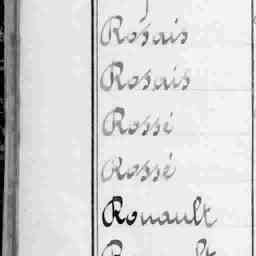 Rosais
Rosais
Rossé
Rossé
Rouault